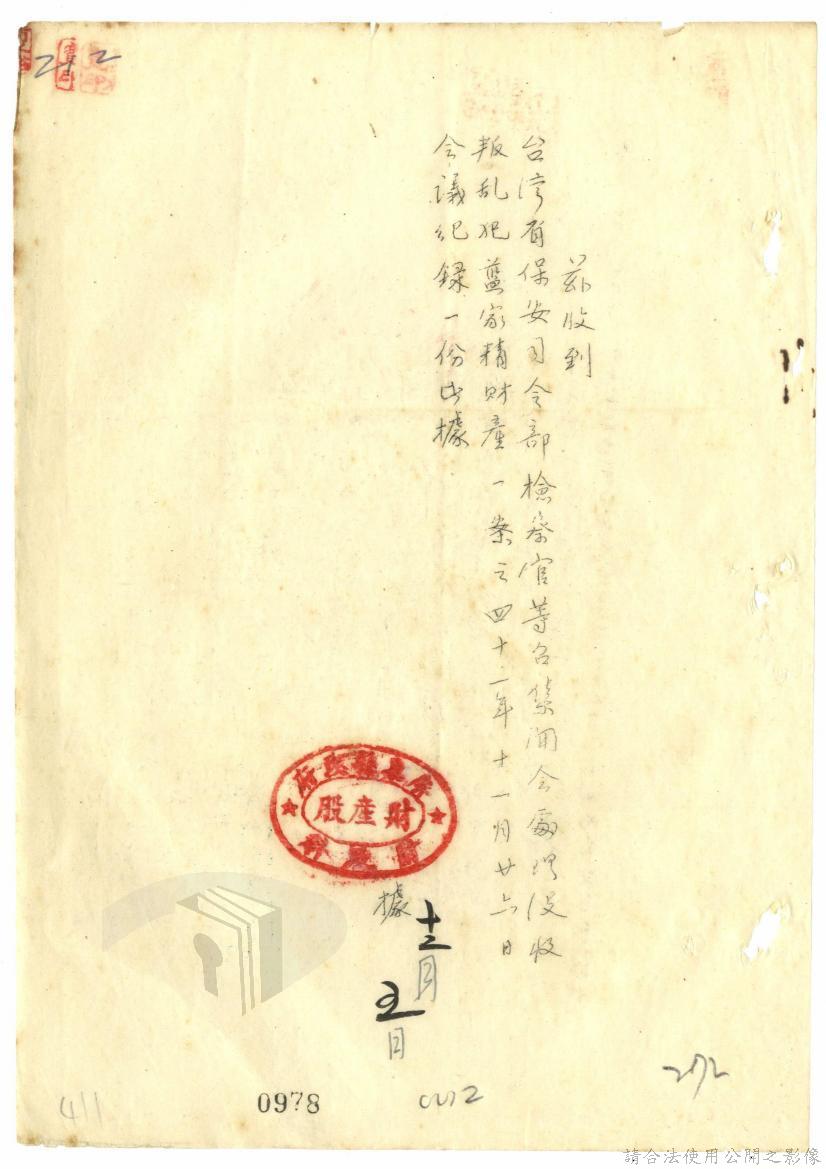 茲收到
台湾省保安司令部檢察官等召集開会處理沒收
叛乱犯藍家精財產一案之四十二年十一月廿六日
会議纪録一份此據
屏東縣政府
財產股
據
十二月
五日
272
411
0978
請合法使用公開之影像